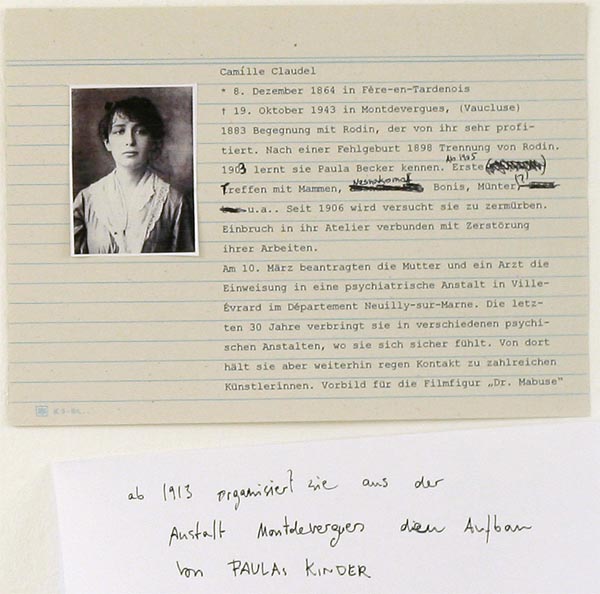 Camille Claudel
* 8. Dezember 1864 in Fère-en-Tardenois
† 19. Oktober 1943 in Montdevergues, (Vaucluse)
1883 Begegnung mit Rodin, der von ihr sehr profi-
tiert. Nach einer Fehlgeburt 1898 Trennung von Rodin.
Ab 1905
1903 lernt sie Paula Becker kennen. Erste
Treffen mit Mammen, Bonis, Münter, (?)
u.a.. Seit 1906 wird versucht sie zu zermürben.
Einbruch in ihr Atelier verbunden mit Zerstörung
ihrer Arbeiten.
Am 10. März beantragten die Mutter und ein Arzt die
Einweisung in eine psychiatrische Anstalt in Ville-
Évrard im Département Neuilly-sur-Marne. Die letz-
ten 30 Jahre verbringt sie in verschiedenen psychi-
schen Anstalten, wo sie sich sicher fühlt. Von dort
hält sie aber weiterhin regen Kontakt zu zahlreichen
Künstlerinnen. Vorbild für die Filmfigur „Dr. Mabuse“
ab 1913 organisiert sie aus der
Anstalt Montdevergues den Aufbau
von PAULAs KINDER